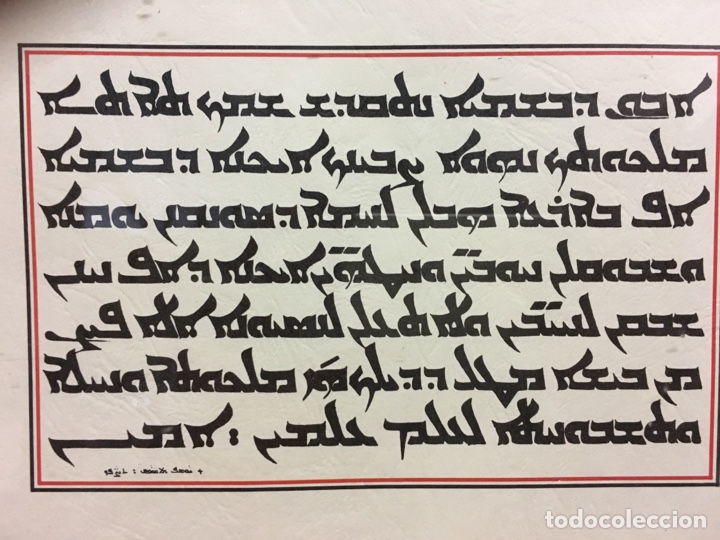 ܐܒܘܢ ܕܒܫܡܝܐ ܢܬܩܕܫ ܫܡܟ ܬܐܬܐ
ܡܠܟܘܬܟ ܢܗܘܐ ܨܒܝܢܟ ܐܝܟܢܐ ܕܒܫܡܝܐ
ܐܦ ܒܐܪܥܐ ܗܒ ܠܢ ܠܚܡܐ ܕܣܘܢܩܢܢ ܝܘܡܢܐ
ܘܫܒܘܩ ܠܢ ܚܘܒܝܢ ܘܚܛܗܝܢ ܐܝܟܢܐ ܕܐܦ ܚܢܢ
ܫܒܩܢ ܠܚܝܒܝܢ ܘܠܐ ܬܥܠܢ ܠܢܣܝܘܢܐ ܐܠܐ ܦܨܢ
ܡܢ ܒܝܫܐ ܡܛܠ ܕܕܝܠܟ ܗܝ ܡܠܟܘܬܐ ܘܚܝܠܐ
ܘܬܫܒܘܚܬܐ ܠܥܠܡ ܥܠܡܝܢ : ܐܡܝܢ
todocoleccion.net